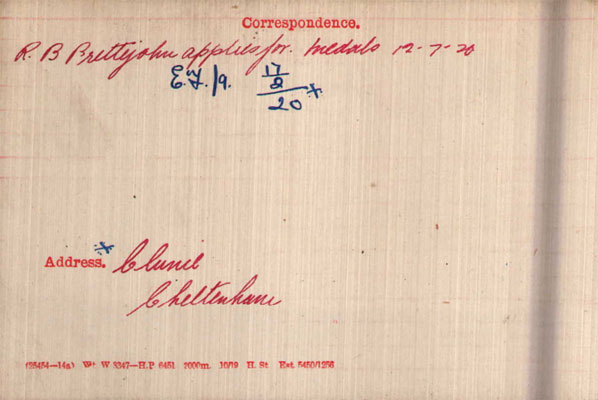 Correspondence.
R. B Brettejohn applies for medals 12-7-20
E.F./9. 17
2
20
Address. Clunie
Cheltenham
(25454—14a) Wt W 3347—H.P 6451 2000m. 10/19 H. St Est 5450/1256